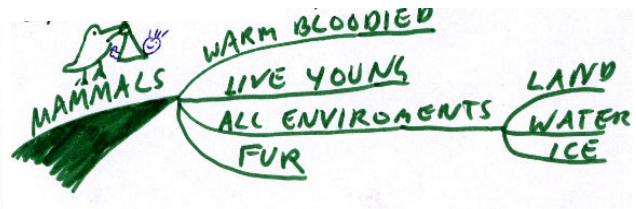 MAMMALS
WARM BLOODIED
LIVE YOUNG
ALL ENVIROMENTS
LAND
WATER
ICE
FUR